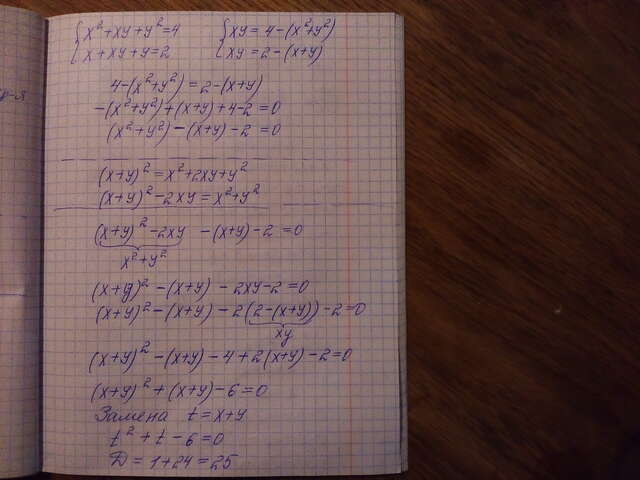 {x²+xy+y²=4 {xy=4-(x²+y²)
{x+xy+y=2 {xy=2-(x+y)
4-(x²+y²)=2-(x+y)
-(x²+y²)+(x+y)+4-2=0
(x²+y²)-(x+y)-2=0
(x+y)²=x²+2xy+y²
(x+y)²-2xy=x²+y²
(x+y)²-2xy -(x+y)-2=0
x²+y²
(x+y)²-(x+y)-2xy-2=0
(x+y)²-(x+y)-2(2-(x+y))-2=0
xy
(x+y)²-(x+y)-4+2(x+y)-2=0
(x+y)²+(x+y)-6=0
Замена t=x+y
t²+t-6=0
D=1+24=25